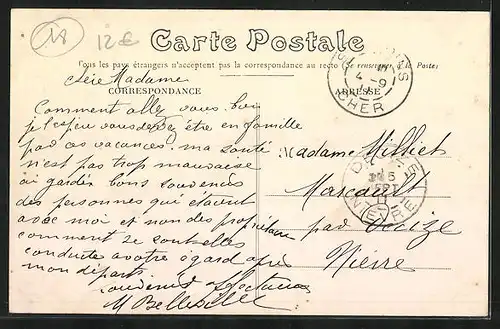 18
12 €
Carte Postale
Tous les pays étrangers n'acceptent pas la correspondance au recto (Se renseigner à la Poste)
Madame
CORRESPONDANCE
ADRESSE
CHER
4 -9
Comment allez vous. bien
je l'espère vous devez être en famille
par ces vacances. ma santé
n'est pas trop mauvaise
ai gardé bons souvenirs
des personnes que étaient
avec moi et non des propriétaire
comment se
conduite a votre égard après
mon départ
M
Madame Milliet
par
Nièvre
NIEVRE